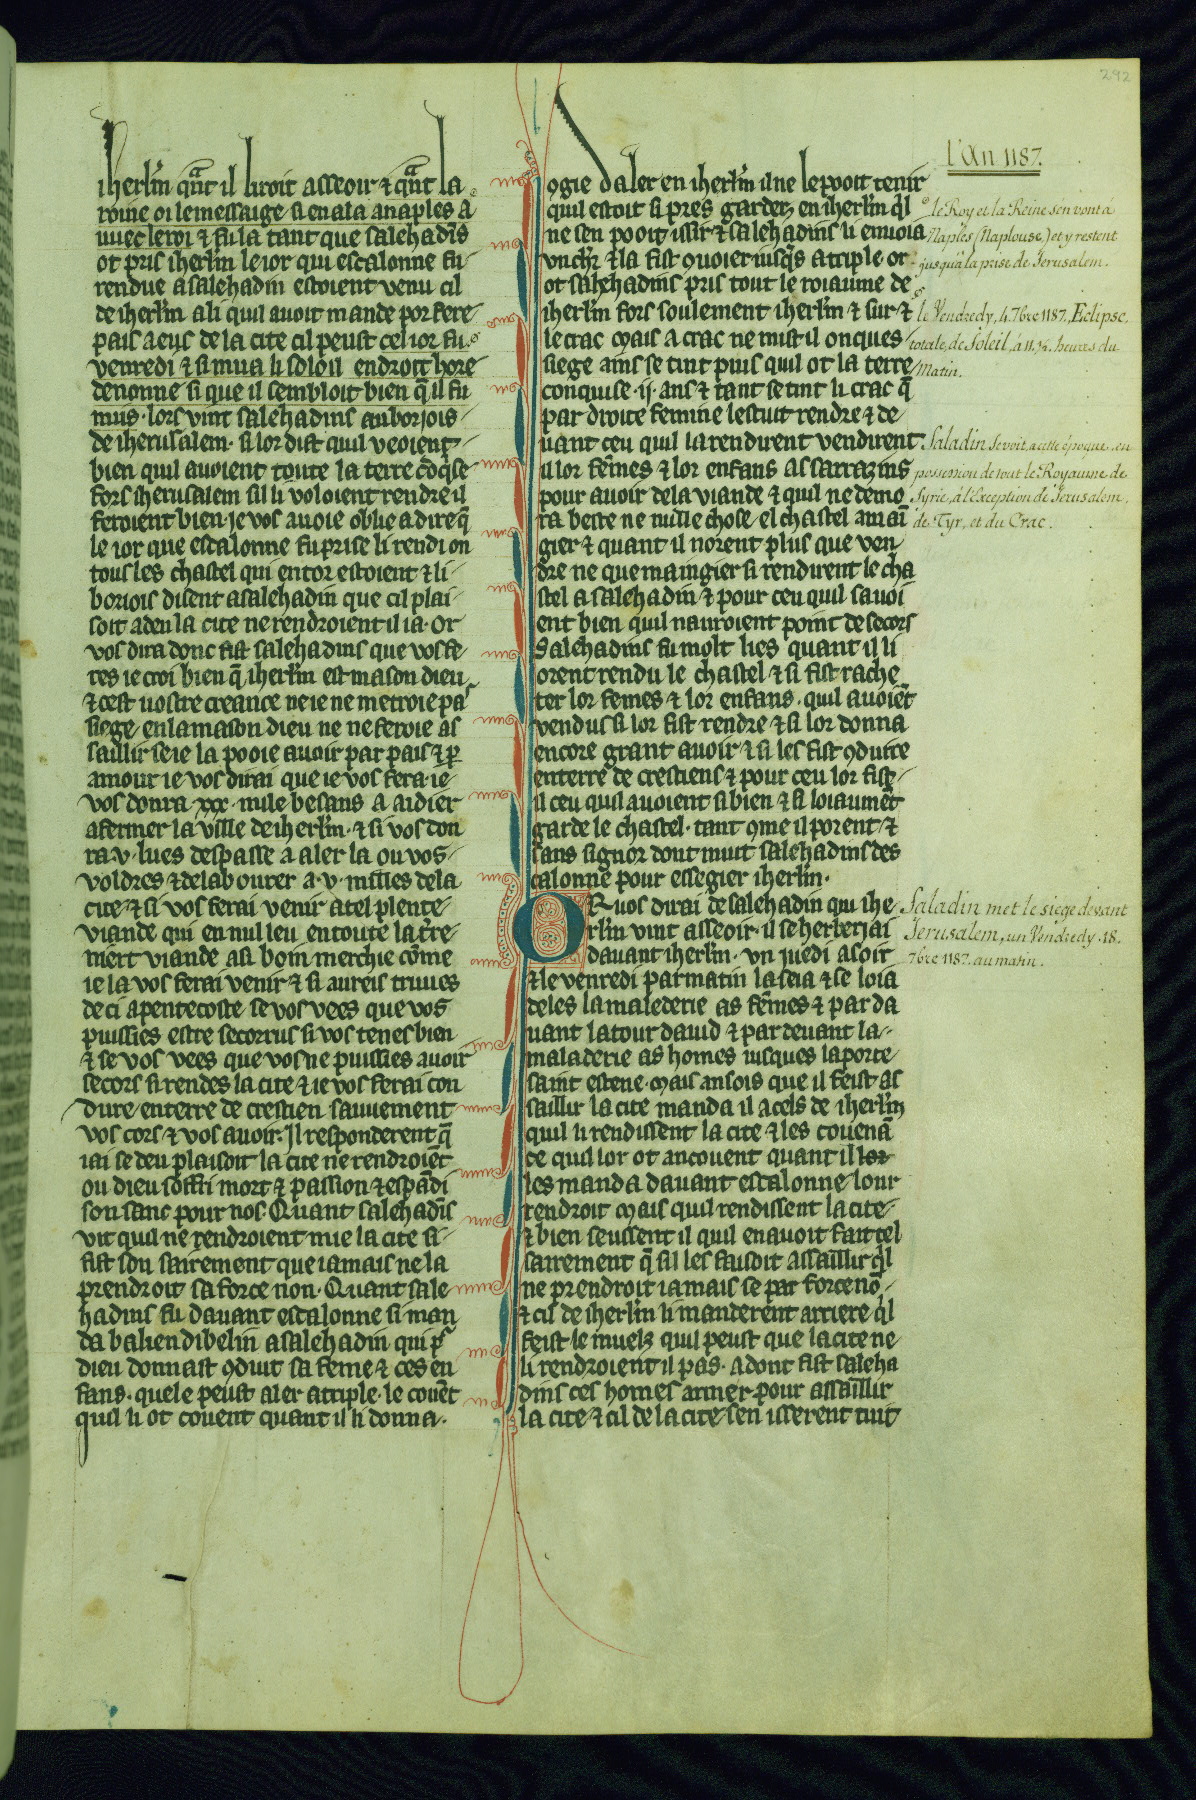 292
iherl'm qn̄t il liroit asseoir ⁊ qn̄t la
roine oi lemessaige si enala anaples a
uuec leroi ⁊ fu la tant que salehadīs
ot pris iherl'm le ior qui escalonne fu
rendue a salehadin estoient venu cil
de iherl'm a li quil auoit mande por fere
pais a eus de la cite cil peust cel ior fu
venredi ⁊ si mua li solou endroit hore
denonne si que il sembloit bien q̄ il fu
mus · lors vint salehadins au borjois
de iherusalem · si lor dist quil veoient
bien quil auoient toute la terre ꝯq̄se
fors iherusalem sil li voloient rendre il
feroient bien · ie vos auoie oblie a dire q̄
le ior que escalonne fu prise li rendi on
tous les chastel qui entor estoient ⁊ li
boriois disent a salehadin que cil plai
soit a deu la cite ne rendroient il ia · Or
vos dira donc fist salehadins que vos fe
res ie croi bien q̄ iherl'm est mason dieu
⁊ cest uostre creance ne ie ne metroie pas
siege en la mason dieu ne ne feroie as
saillir se ie la pooie auoir par pais ⁊ p̄
amour ie vos dirai que ie vos fera · ie
vos donra · xxx · mile besans a aidier
a fermer la ville de iherl'm · ⁊ si vos don
ra · v · lues despasse a aler la ou vos
voldres ⁊ delabourer a · v · milles de la
cite · ⁊ si vos ferai venir a tel plente
viande qui en nul leu en toute la t're
niert viande a si boin merchie cōme
ie la vos ferai venir ⁊ si aureis truues
de ci a pentecoste se vos vees que vos
puissies estre secorrus si vos tenes bien
⁊ se vos vees que vos ne puissies auoir
secors si rendes la cite ⁊ ie vos ferai con
dure enterre de crestien sauuement
vos cors ⁊ vos auoir · Il responderent q̄
iai se deu plaisoit la cite ne rendroiēt
ou dieu soffri mort ⁊ passion ⁊ espādi
son sanc pour nos Quant salehadīs
vit quil ne rendroient mie la cite si
fist son sairement que iamais ne la
prendroit sa force non · Quant sale
hadins fu dauant escalonne si man
da balien dibelin a salehadin qui p̄
dieu donnast ꝯduit sa feme ⁊ ces en
fans · quele peust aler a triple · le couēt
quil li ot couent quant il li donna ·
ꝯgie daler en iherl'm il ne le pooit tenir
quil estoit si pres gardez en iherl'm q'l
ne sen pooit issir ⁊ salehadins li enuoia
vn ch'r ⁊ la fist ꝯuoier iusq's a triple or
ot salehadins pris tout le roiaume de
iherl'm fors soulement iherl'm ⁊ sur ⁊
le crac mais a crac ne mist il onques
siege ains se tint puis quil ot la terre
conquise · ij · ans ⁊ tant se tint li crac q̄
par droite femine lestuit rendre ⁊ de
uant ceu quil la rendirent vendirent
il lor fēmes ⁊ lor enfans as sarrazins
pour auoir de la viande ⁊ quil ne demo
ra beste ne nulle chose · el chastel a māi
gier ⁊ quant il norent plus que ven
dre ne que maingier si rendirent le cha
stel a salehadin ⁊ pour ceu quil sauoi
ent bien quil nauroient point de secors
Salehadins fu molt lies quant il li
orent rendu le chastel ⁊ si fist rache
ter lor femes ⁊ lor enfans · quil auoiēt
vendus si lor fist rendre ⁊ si lor donna
encore grant auoir ⁊ si les fist ꝯduire
enterre de crestiens ⁊ pour ceu lor fist
il ceu quil auoient si bien ⁊ si loiaumēt
garde le chastel · tant ꝯme il porent ⁊
sans signor dont muit salehadins des
calonne pour essegier iherl'm ·
OR uos dirai de salehadin qui ihe
rl'm vint asseoir · il se herberiai
dauant iherl'm · vn juedi a soir
⁊ le venredi par matin laseia ⁊ se loia
deles la malederie as fēmes ⁊ par da
uant la tour dauid ⁊ par deuant la
maladerie as homes iusques la porte
saint estene · mais ansois que il feist as
saillir la cite manda il a cels de iherl'm
quil li rendissent la cite ⁊ les couenā
ce quil lor ot ancouent quant il lor
les manda dauant escalonne lour
rendroit mais quil rendissent la cite
⁊ bien seussent il quil en auoit fait tel
sairement q̄ sil les faisoit assaillir q'l
ne prendroit iamais se par force nō
⁊ cil de iherl'm li manderent arriere q'l
feist le muelz quil peust que la cite ne
li rendroient il pas · adont fist saleha
dins ces homes armer pour assaillir
la cite ⁊ cil de la cite sen isserent tuit
l'An 1187.
le Roy et la Reine s'en vont à
Naples (Naplouse) et y restent
jusqu'à la prise de Jerusalem.
le Vendredy, 4. 7bre 1187, Eclipse
totale, de Soleil, à 11. ¾. heures du
Matin.
Saladin se voit, a cette époque, en
possession de tout le Royaume de
Syrie, à l'exception de Jerusalem,
de Tyr, et du Crac.
Saladin met le siège devant
Jerusalem, un Vendredy . 18.
7bre 1187. au matin.